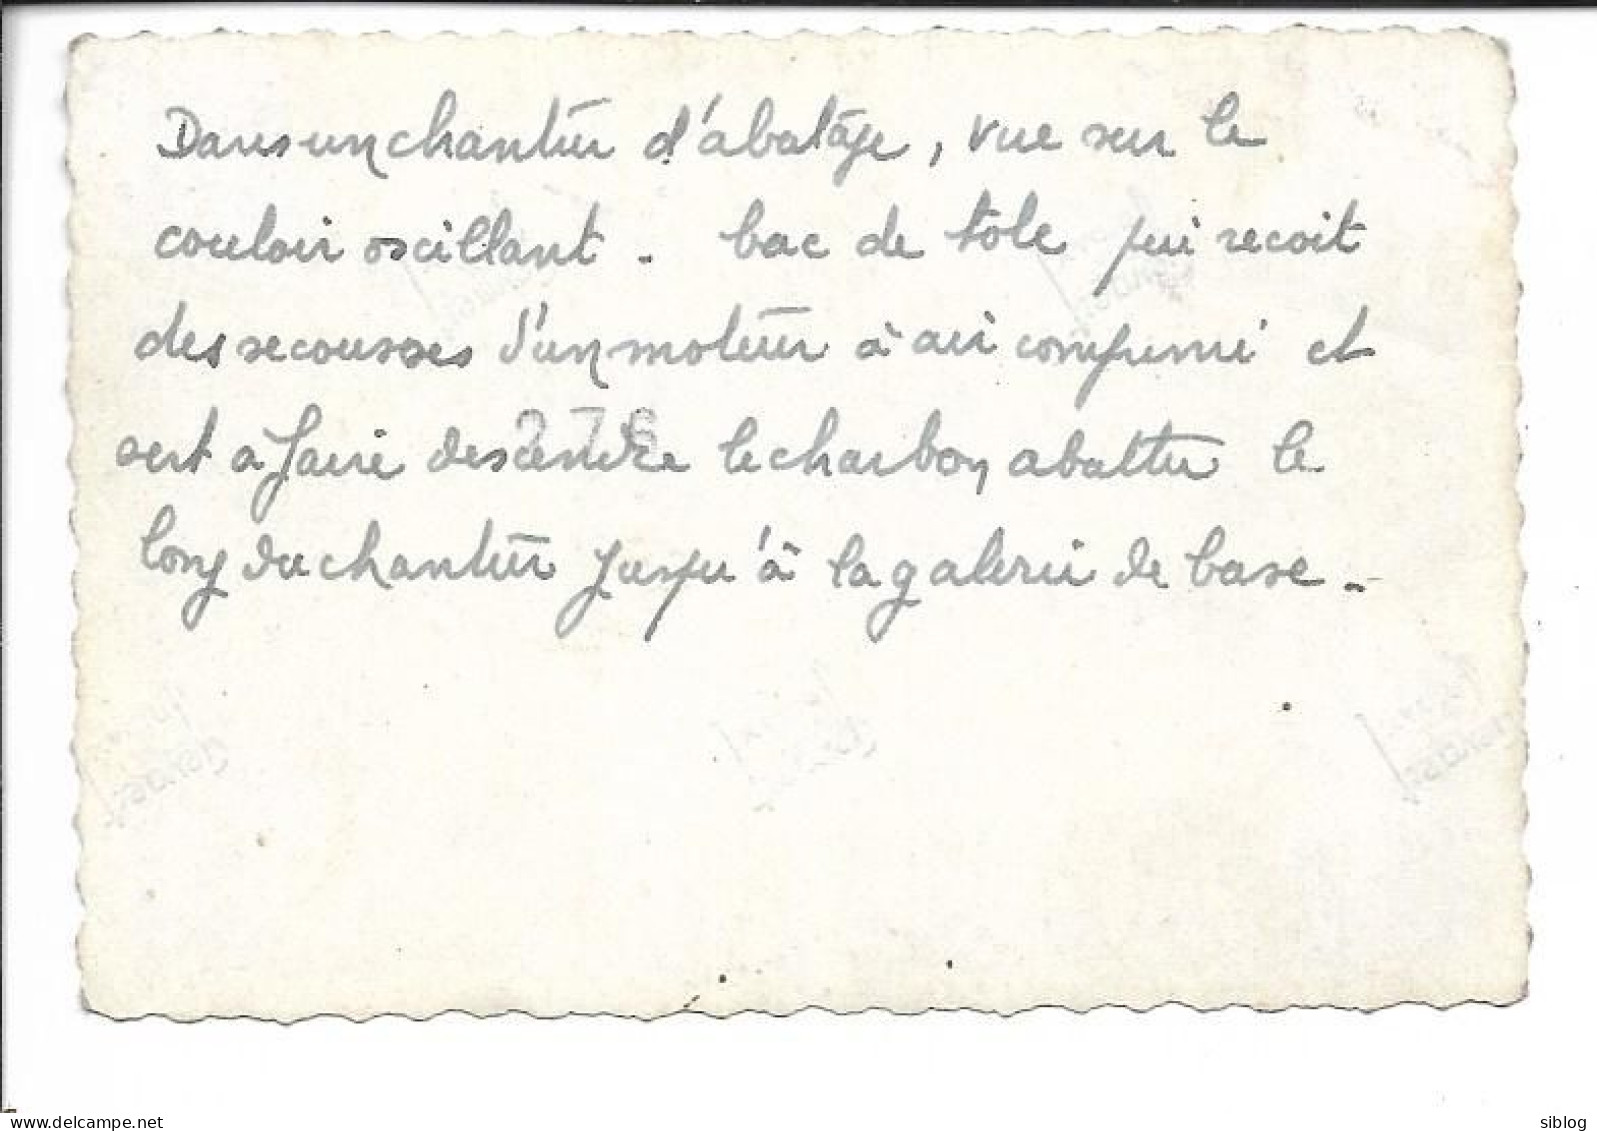 Dans un chantier d'abatâge, vue sur le
couloir oscillant. bac de tôle qui recoit
des secousses d'un moteur à air comprimé et
sert à faire descendre le charbon abattu le
276
long du chantier jusqu'à la galerie de base.
www.delcampe.net
siblog